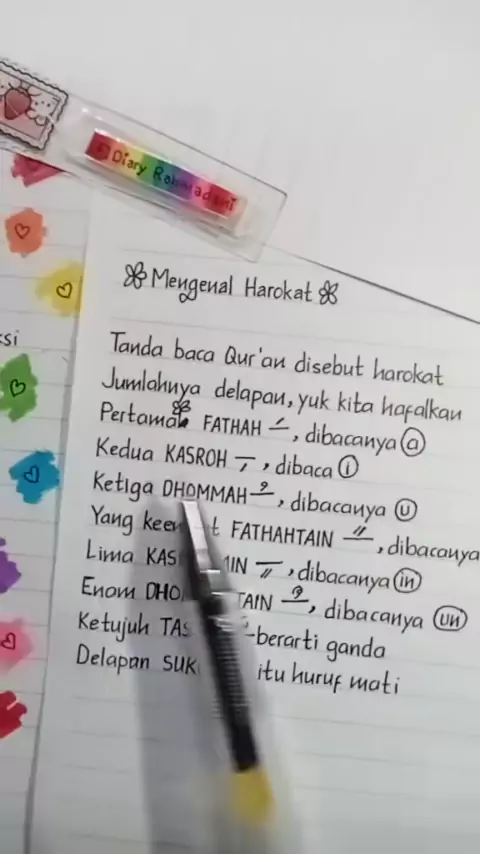 Diary Ramadani
Mengenal Harokat
ksi
Tanda baca Qur'an disebut harokat
Jumlahnya delapan, yuk kita hafalkan
Pertama FATHAH ـَ , dibacanya a
Kedua KASROH ـِ , dibaca i
Ketiga DHOMMAH ـُ , dibacanya u
Yang FATHAHTAIN ـً , dibacanya
Lima ـٍ , dibacanya in
Enam ـٌ , dibacanya un
Ketujuh berarti ganda
Delapan itu huruf mati